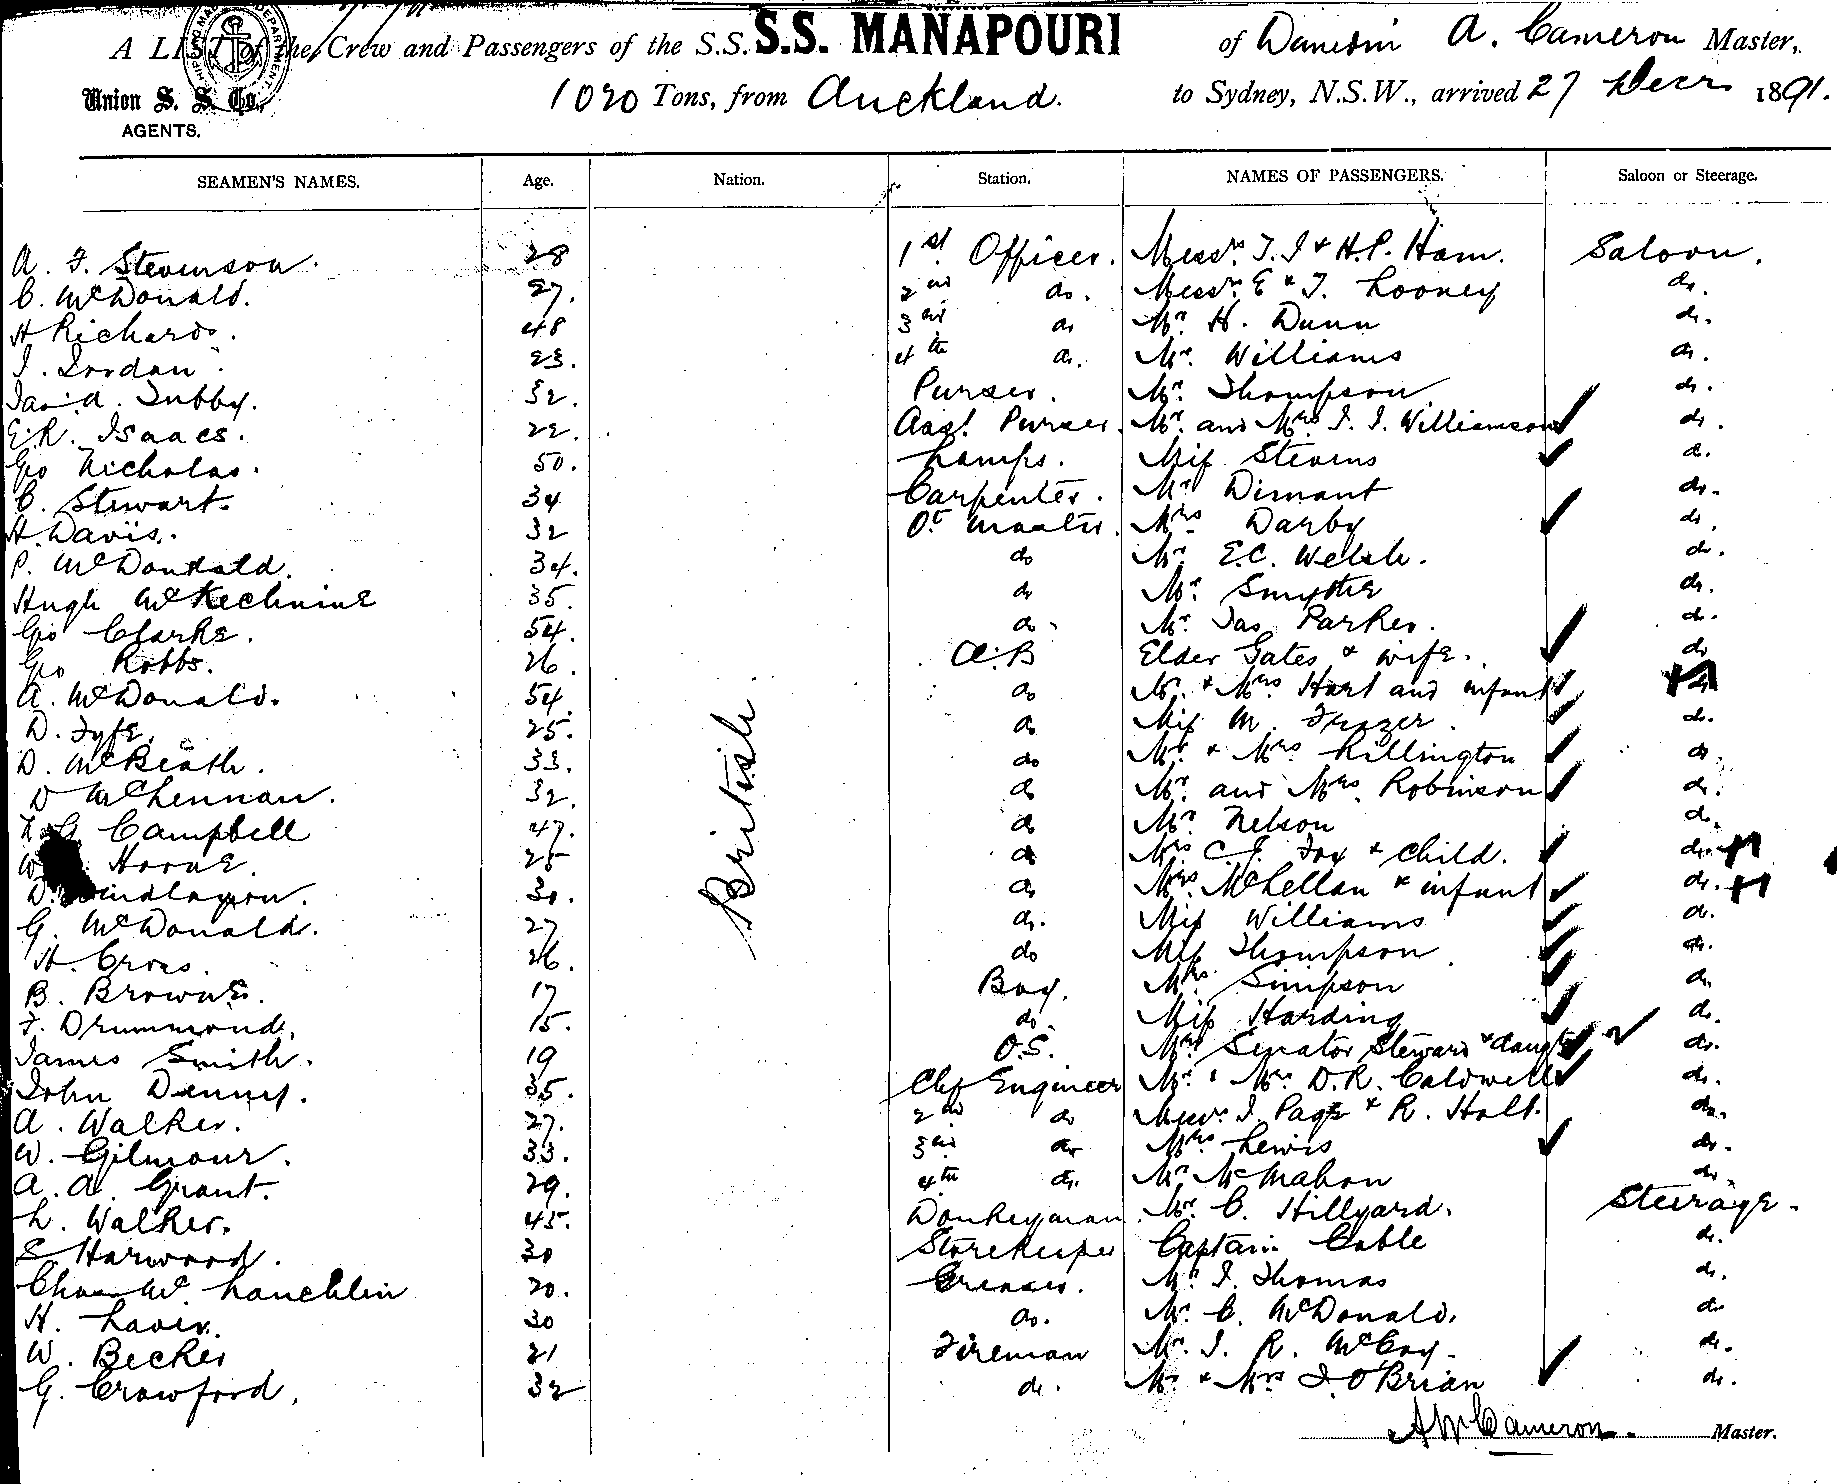 A LIST of the Crew and Passengers of the S.S. S.S. MANAPOURI of Dunedin A. Cameron Master,
Union S. S. Co., 1020 Tons, from Auckland. to Sydney, N.S.W., arrived 27 Decr 1891.
AGENTS.
SEAMEN'S NAMES. Age. Nation. Station. NAMES OF PASSENGERS. Saloon or Steerage.
A. F. Stevenson. 28 1st Officer. Messrs. T. J & H.P. Ham. Saloon.
C. McDonald. 27. 2nd do. Messrs. E & T. Looney do.
H Richards. 48 3rd do Mr. H. Dunn do.
J. Jordan. 23. 4th do. Mr. Williams do.
David Tubby. 32. Purser. Mr. Thompson do.
E.R. Isaacs. 22. Asst. Purser. Mr. and Mrs J. J. Williamson do.
Geo Nicholas. 50. Lamps. Miss Stevens do.
C. Stewart. 34 Carpenter. Mr Dimant do.
H. Davis. 32 Qr Master. Mrs Darby do.
P. McDonald. 34. do Mr. E.C. Welsh. do.
Hugh McKechnine 35. do Mr. Smythe do.
Geo Clarke. 54. do. Mr. Jas Parker. do.
Geo Robbs. 26. A.B Elder Gates & wife. do
A. McDonald. 54. do Mr. & Mrs Hart and infant do
D. Fyfe. 25. do Miss M. Frazer. do.
D. McBeath. 33. do Mr. & Mrs. Killington do
D McLennan. 32. do Mr. and Mrs. Robinson do.
Campbell 47. do Mr. Nelson do.
W Horne. 25 do Mrs C. J. Fox & child. do.
D. 30. do Mrs. McLellan & infant do.
G. McDonald. 27 do. Miss Williams do.
H. Cross. 26. do Miss Thompson do.
B. Browne. 17 Boy. Mrs. Simpson do.
F. Drummond. 15. do. Miss Harding do.
James Smith. 19 O.S. Mrs Senator Steward & daugt do.
John Denny. 35. Chf Engineer Mr. & Mrs. D.R. Caldwell do.
A. Walker. 27. 2nd do Messrs. J. Page & R. Holt. do.
W. Gilmour. 33. 3rd do Mrs Lewis do.
A. A. Grant. 29. 4th do. Mr. McMahon do.
L. Walker. 45. Donkeyman. Mr. C. Hillyard. Steerage.
E Harwood. 30 Storekeeper Captain Cable do.
Chas Mc Lauchlin 20. Greaser. Mr. J. Thomas do.
H. Laver. 30 do. Mr. C. McDonald. do
W. Becker 21 Fireman Mr. J. R. McCoy. do.
G. Crawford. 32 do. Mr & Mrs J. O'Brian do.
British.
A W Cameron. Master.